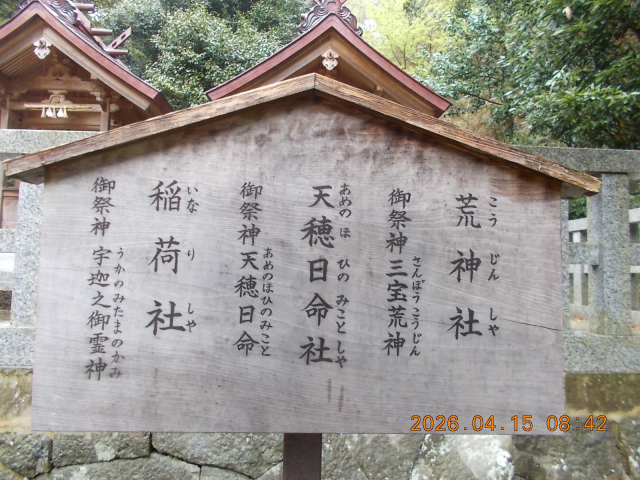 荒神社
こうじんしや
御祭神 三宝荒神
さんぽうこうじん
天穂日命社
あめのほひのみことしや
御祭神 天穂日命
あめのほひのみこと
稲荷社
いなりしや
御祭神 宇迦之御霊神
うかのみたまのかみ
2026.04.15 08:42